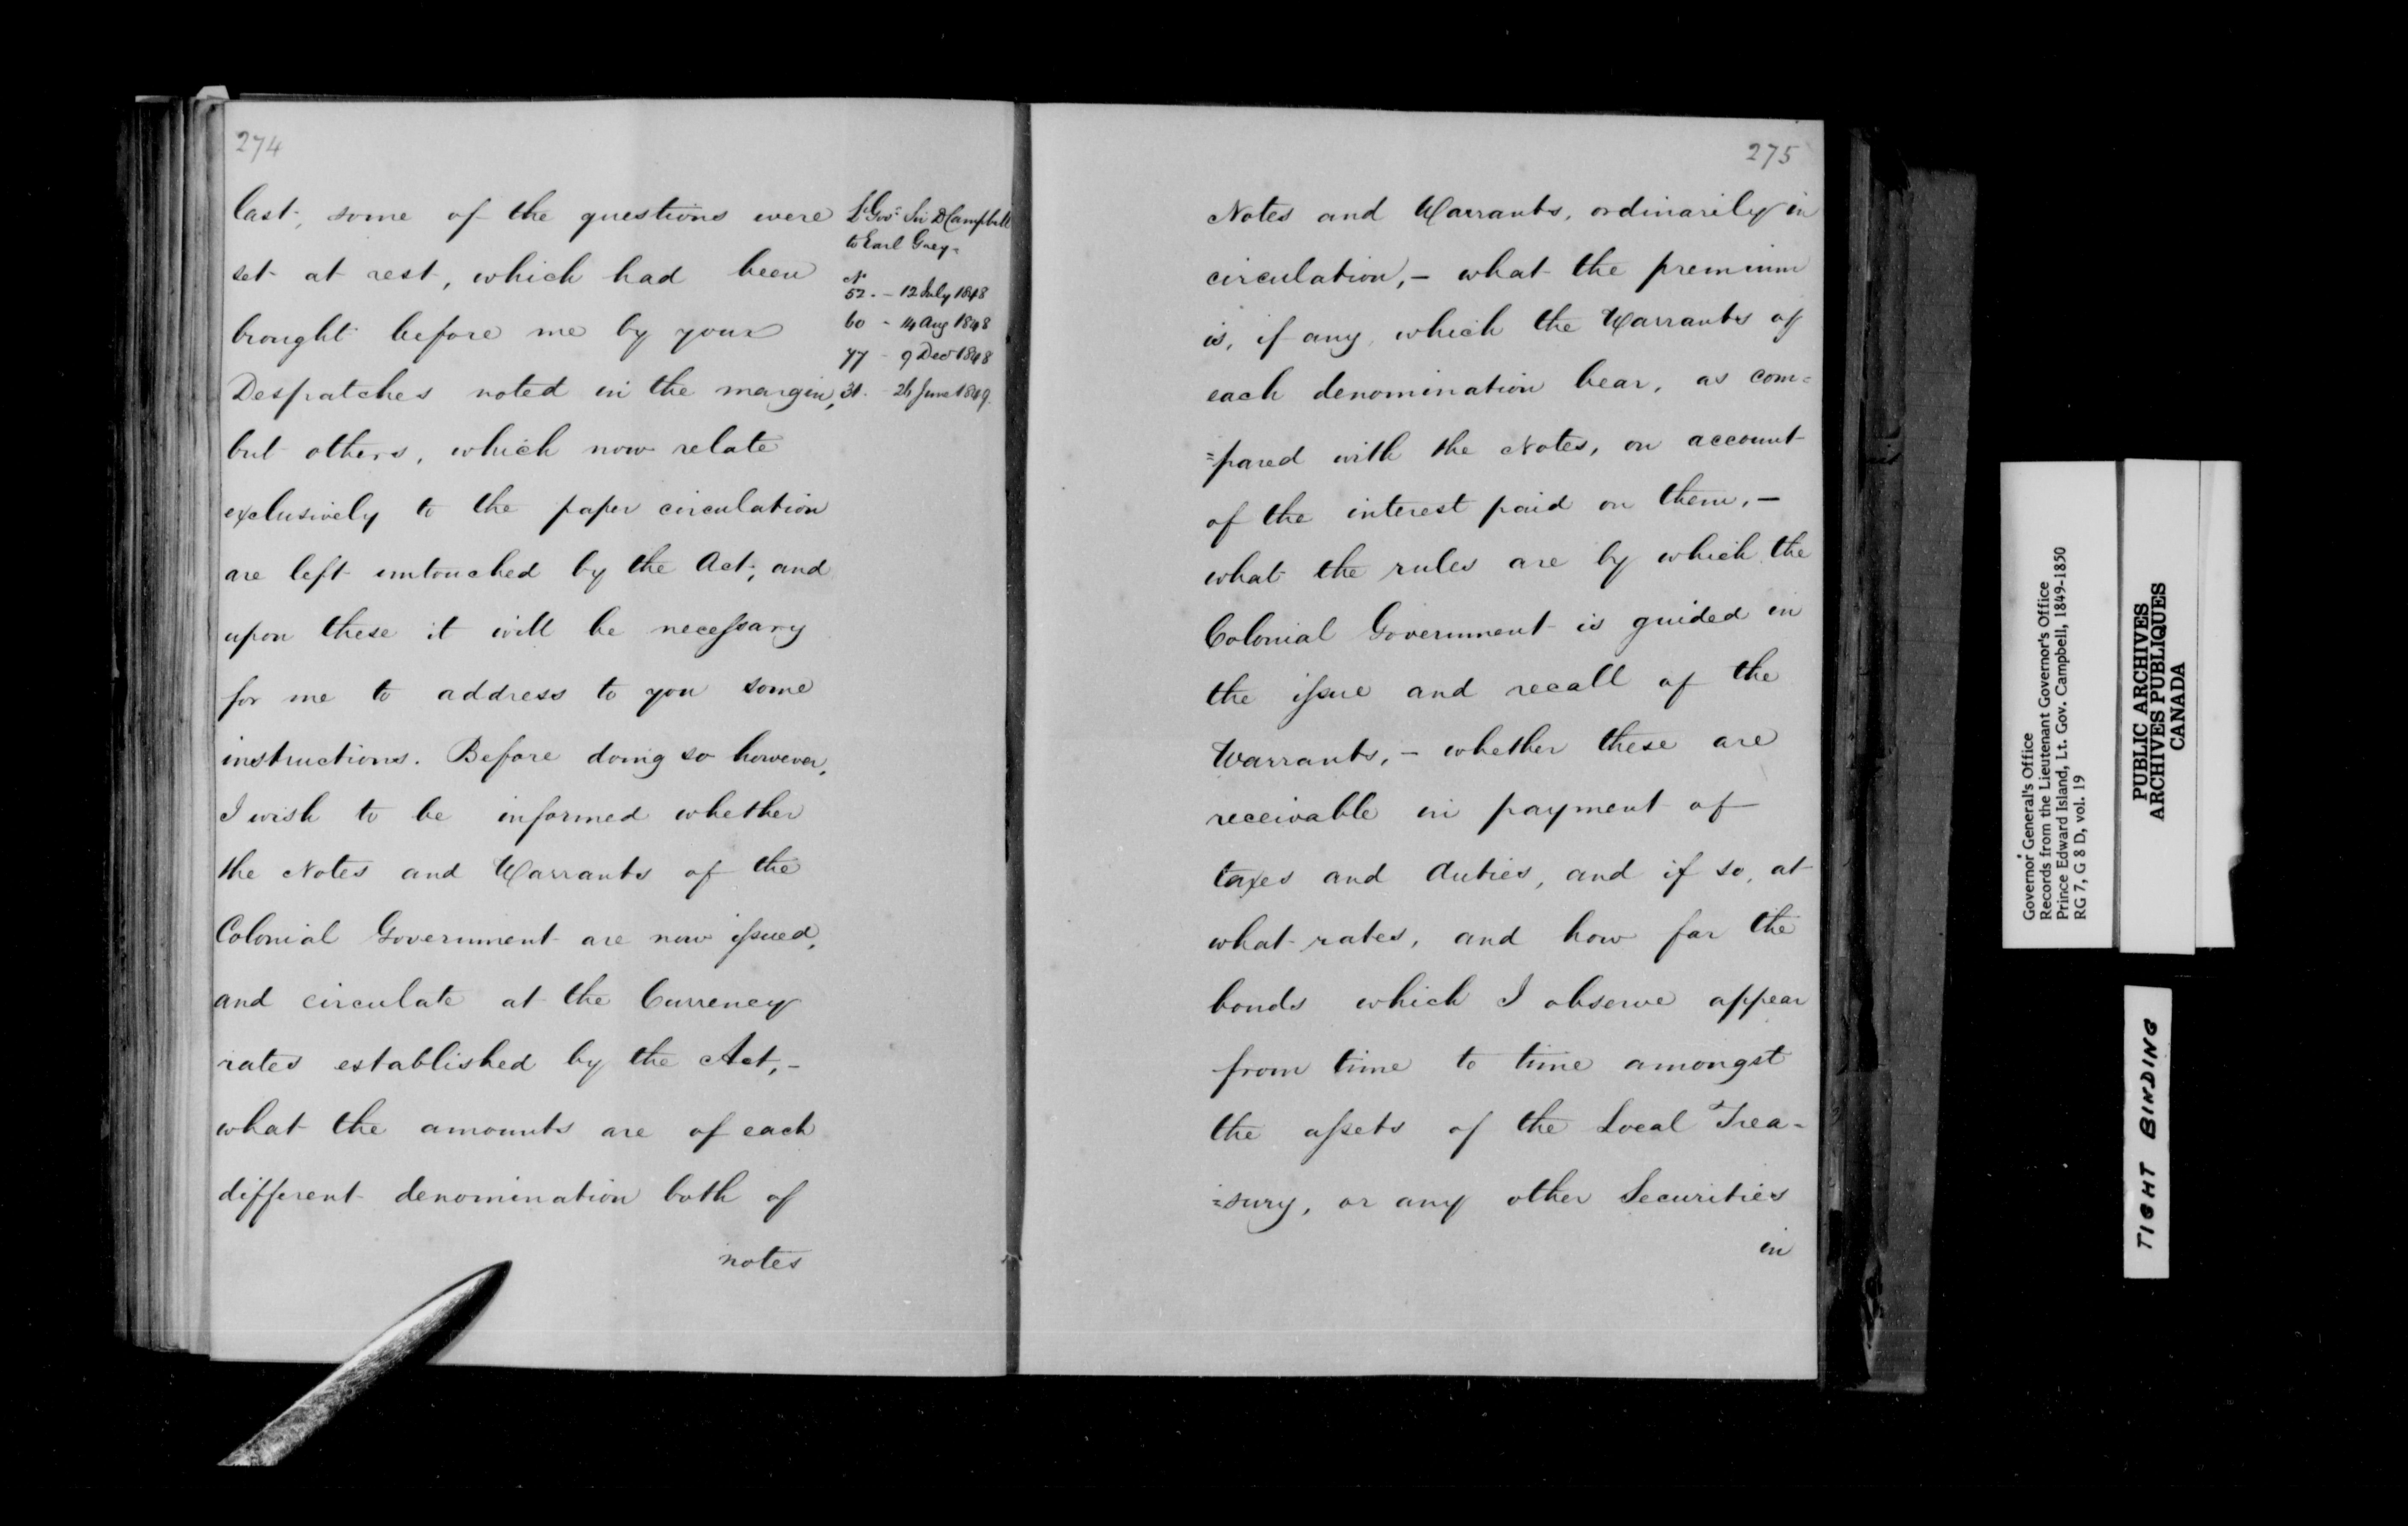 274
last, some of the questions were
set at rest, which had been
brought before me by your
Despatches noted in the margin,
but others, which now relate
exclusively to the paper circulation
are left untouched by the Act; and
upon these it will be necessary
for me to address to you some
instructions. Before doing so however,
I wish to be informed whether
the Notes and Warrants of the
Colonial Government are now issued,
and circulate at the Currency
rates established by the Act,-
what the amounts are of each
different denomination both of
notes
Lt Govr Sir D Campbell
to Earl Grey-
No
52. - 12 July 1848
60 - 14 Aug 1848
77 - 9 Decr 1848
31. - 26 June 1849.
275
Notes and Warrants, ordinarily in
circulation, - what the premium
is, if any, which the Warrants of
each denomination bear, as com=
=pared with the Notes, on account
of the interest paid on them, -
what the rules are by which the
Colonial Government is guided in
the issue and recall of the
Warrants, - whether these are
receivable in payment of
taxes and duties, and if so, at
what rates, and how far the
bonds which I observe appear
from time to time amongst
the assets of the Local Trea-
=sury, or any other Securities
in
Governor General's Office
Records from the Lieutenant Governor's Office
Prince Edward Island, Lt. Gov. Campbell, 1849-1850
RG 7, G 8 D, vol. 19
PUBLIC ARCHIVES
ARCHIVES PUBLIQUES
CANADA
TIGHT BINDING